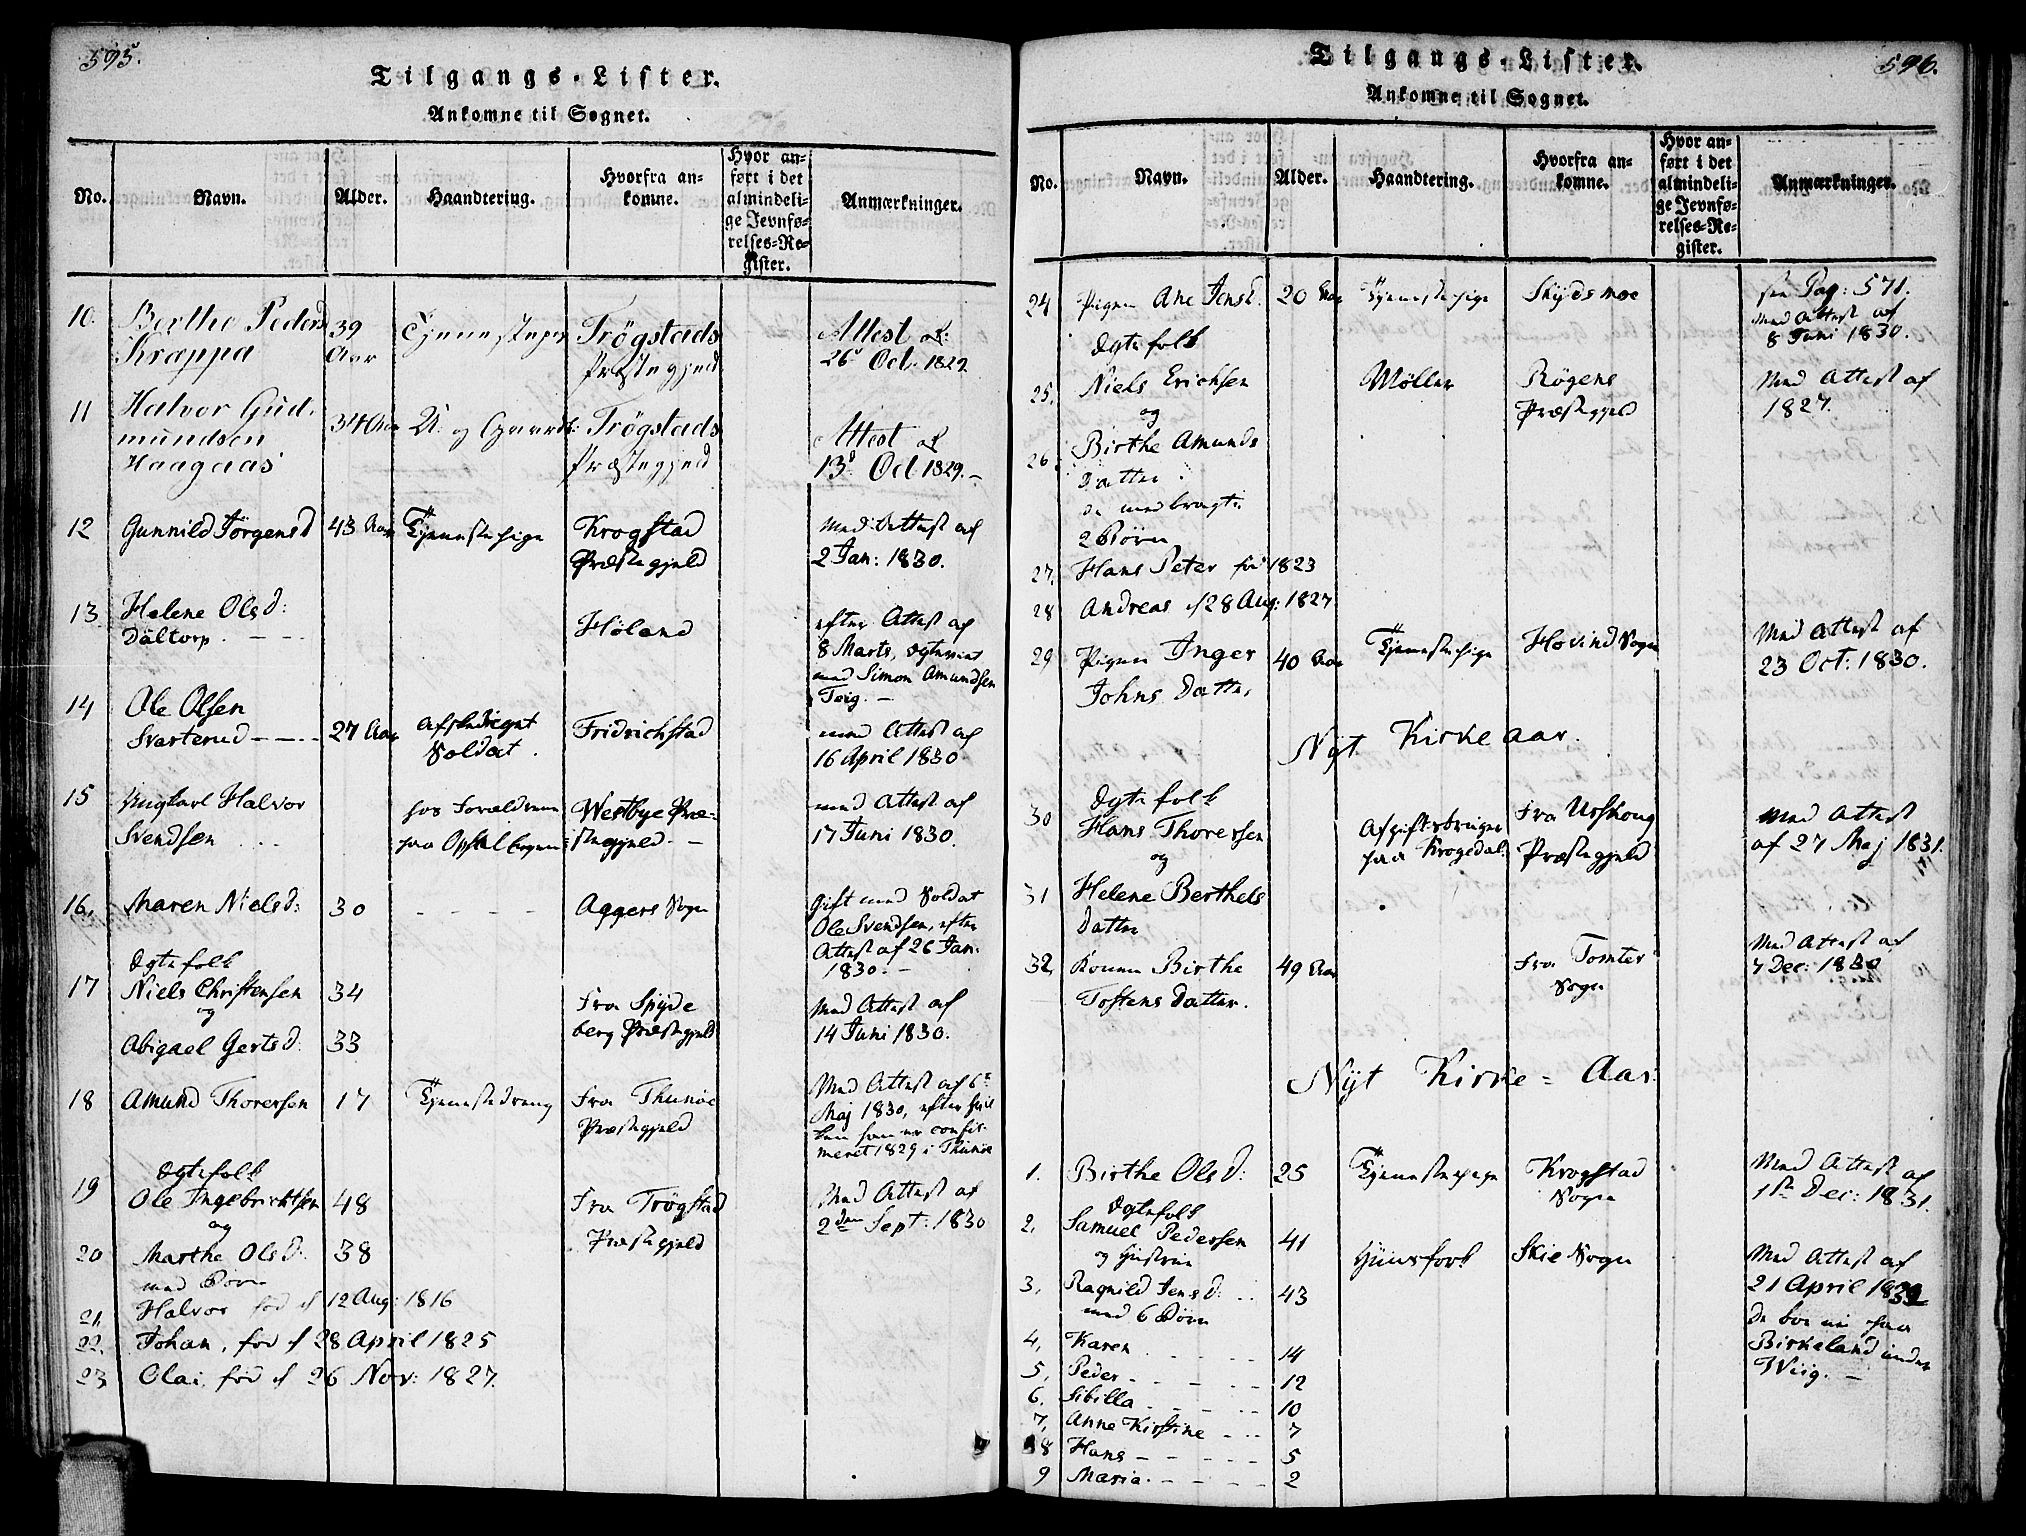 595.
Tilgangs-Lister.
Ankomne til Sognet.
No. Navn. Alder. Haandtering. Hvorfra ankomne. Hvor anført i det almindelige Jevnførelses-Register. Anmærkninger.
10. Berthe Peders 39 Tjenestepr Trögstads Attest af
Kræppa Aar Præstegjeld 26d Oct. 1829
11 Halvor Gud- 34 Aar U. og Gaardb: Trögstads Attest af
mundsen Præstegjeld 13d Oct 1829. –
Haagaas
12 Gunnild Jörgensd 43 Aar Tjenestepige Krogstad Med Attest af
Præstegjeld 2 Jan: 1830.
13. Helene Olsd: Höland efter Attest af
Dältorp. – – – 8 Marts, egteviet
med Simon Amundsen
Teig. –
14 Ole Olsen
Svarterud – – – 27 Aar Afskediget Fridrichstad med Attest af
Soldat. 16 April 1830
15 Ungkarl Halvor hos Forældrene Westbye Præ- med Attest af
Svendsen . . . paa Opsal stegjeld. – 17 Juni 1830.
16. Maren Nielsd: 30 – – – – Aggers Sogn gift med Soldat
Ole Svendsen, efter
Attest af 26 Jan.
1830. –
Egtefolk
17 Niels Christensen 34 Fra Spyde Med Attest af
og berg Præstegjeld 14 Juni 1830.
Abigael Gertsd: 33
18 Amund Thoresen 17 Tjenestedreng Fra Thunöe Med Attest af 6te
Præstegjeld Maj 1830, efter hvil
ken han er confir-
meret 1829 i Thunöe
Egtefolk
19 Ole Ingebrichtsen 48 Fra Trögstad Med Attest af
og Præstegjeld 2den Sept: 1830
20 Marthe Olsd: 38
med Börn
21. Halvor fød d 12 Aug: 1816
22. Johan, fød d 28 April 1825
23 Olai, fød d 26 Nov: 1827.
596.
Tilgangs-Lister.
Ankomne til Sognet.
No. Navn. Alder. Haandtering. Hvorfra ankomne. Hvor anført i det almindelige Jevnførelses-Register. Anmærkninger.
24 Pigen Ane Jensd. 20 Aar Tjenestepige Skydsmoe see Pag: 571.
Med Attest af
8 Juni 1830.
Egtefolk
25. Niels Erichsen Møller Rögens Med Attest af
og Præstegjeld 1827.
26. Birthe Amunds
Datter.
de medbragte
2 Börn
27. Hans Peter fød 1823
28 Andreas d 28 Aug: 1827
29 Pigen Inger 40 Aar Tjenestepige Hovind Sogn Med Attest af
Johns Datter 23 Oct: 1830.
Nyt Kirkeaar.
Egtefolk
30 Hans Thoresen Afgiftsbruger Fra Urskoug Med Attest
og paa Krogedal. Præstegjeld af 27 Maj 1831.
31 Helene Berthels
Datter
32. Konen Birthe 49 Aar Fra Tomter Med Attest af
Tostens Datter. Sogn 7 Dec: 1830
Nyt Kirke = Aar.
1. Birthe Olsd: 25 Tjenestepige Krogstad Med Attest af
Sogn 1ste Dec: 1831.
Egtefolk
2. Samuel Pedersen 41 Huusfolk Skie Sogn Med Attest af
og Hustrue 21 April 1832
3. Ragnild Jensd: . . 43 De boe nu paa
med 6 Börn Birkeland under
4. Karen . – – – – 14 Wiig. –
5. Peder – – – – 12
6. Sibilla – – – – 10
7. Anne Kirstine – – 7
8 Hans – – – – – 5
9 Maria. – – – – 2